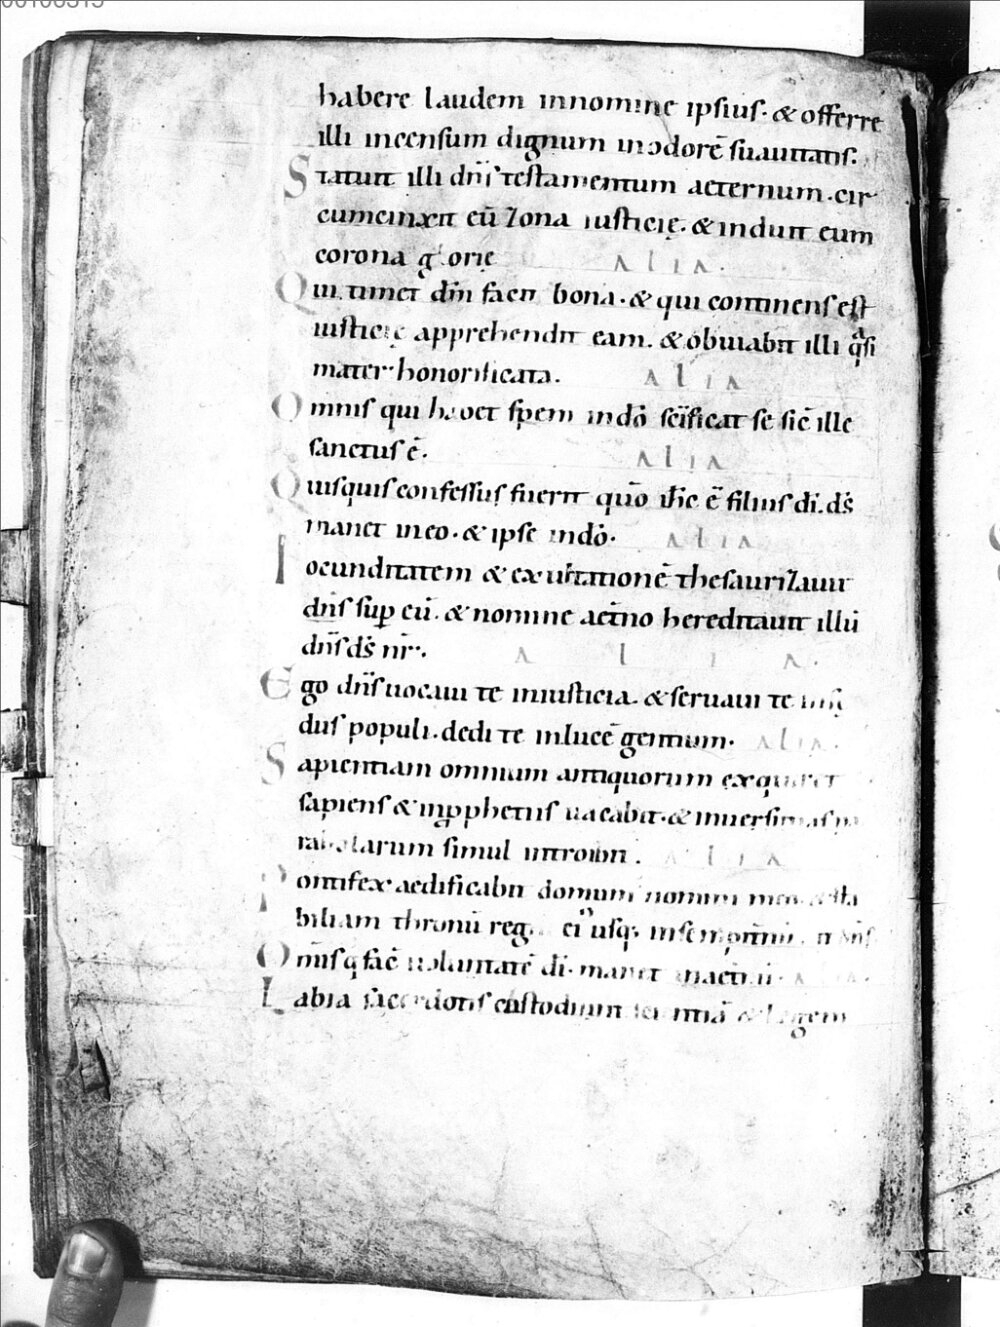 habere laudem innomine ipsius. & offerre
illi incensum dignum inodorē suauitatis.
Statuit illi dn̄s testamentum aeternum. cir
cumcinxit eū zona iusticię. & induit eum
corona glorię ALIA.
Qui timet dm̄ faciet bona. & qui continens est
iusticię apprehendit eam. & obuiabit illi q̄si
mater honorificata. ALIA
Omnis qui habet spem indō sc̄ificat se sic̄ ille
sanctus ē. ALIA
Quisquis confessus fuerit quō ih̄c ē filius dī. dс̄
manet ineo. & ipse indō. ALIA
Iocunditatem & exultationē thesaurizauit
dn̄s sup eū. & nomine aet̄no hereditauit illū
dn̄s ds̄ nr̄. ALIA.
Ego dn̄s uocaui te iniusticia. & seruaui te
dus populi. dedi te inlucē gentium. ALIA.
Sapientiam omnium antiquorum exquiret
sapiens & inpphetis uacabit. & inuersutias pa
rabolarum simul introibit. ALIA
Pontifex aedificabit domum nomini meo
biliam thronū regni ei usq; insempit̄nū.
Om̄is q facē uoluntatē dī. manet inaet̄nū. ALIA.
Labia sacerdotis custodiunt scientiā & legem